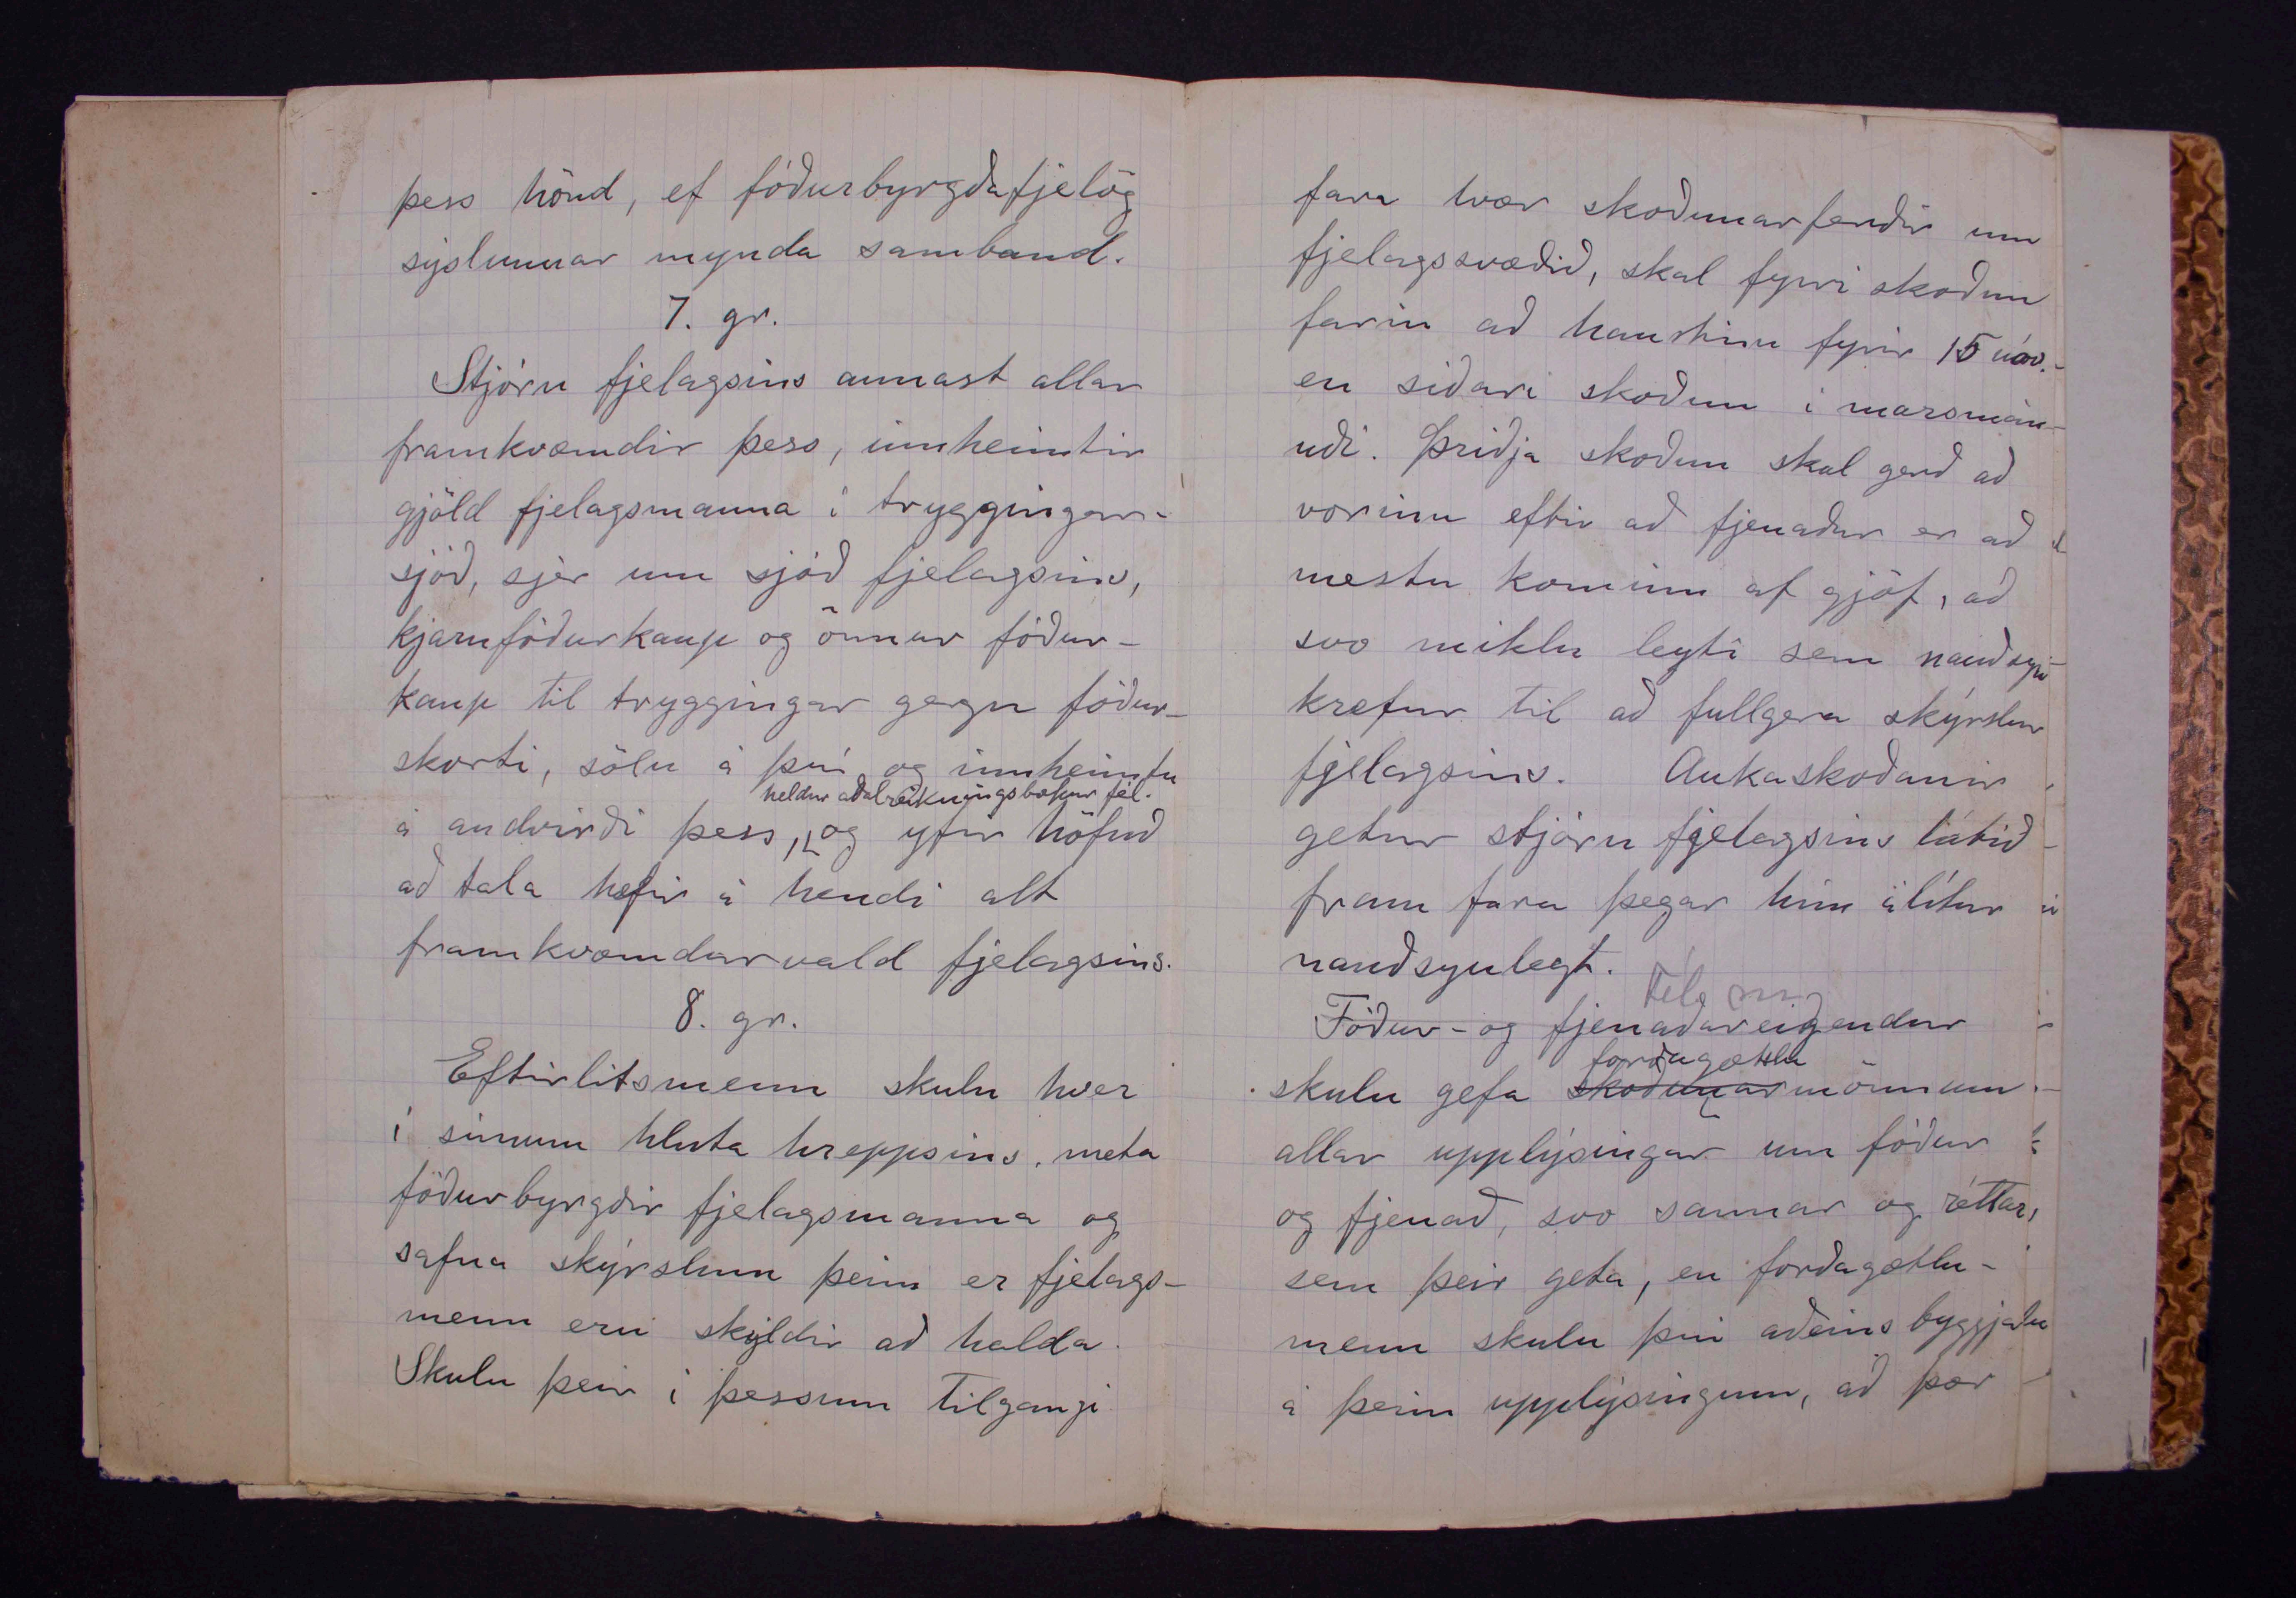 þess hönd, ef fóðurbyrgðafjelög
sýslunnar mynda samband.
7. gr.
Stjórn fjelagsins annast allar
framkvæmdir þess, innheimtir
gjöld fjelagsmanna í tryggingar-
sjóð, sjer um sjóð fjelagsins,
kjarnfóðurkaup og önnur fóður-
kaup til tryggingar gegn fóður-
skorti, sölu á því og innheimtu
heldur aðalreikningsbækur fél.
á andvirði þess, og yfir höfuð
að tala hefir á hendi alt
framkvæmdarvald fjelagsins.
8. gr.
Eftirlitsmenn skulu hver
í sínum hluta hreppsins, meta
fóðurbyrgðir fjelagsmanna og
safna skýrslum þeim er fjelags-
menn eru skyldir að halda.
Skulu þeir í þessum tilgangi
fara tvær skoðunarferðir um
fjelagssvæðið, skal fyrri skoðun
farin að haustinu fyrir 15 nóv.
en síðari skoðun í marsmán-
uði. Þriðja skoðun skal gerð að
vorinu eftir að fjenaður er að
mestu kominn af gjöf, að
svo miklu leyti sem nauðsyn
krefur til að fullgera skýrslur
fjelagsins. Aukaskoðanir
getur stjórn fjelagsins látið
fram fara þegar hún álítur
nauðsynlegt.
Fóður- og fjenaðareigendur
forðagætslu
skulu gefa skoðunarmönnum
allar upplýsingar um fóður
og fjenað, svo sannar og réttar,
sem þeir geta, en forðagætslu-
menn skulu því aðeins byggja
á þeim upplýsingum, að þær